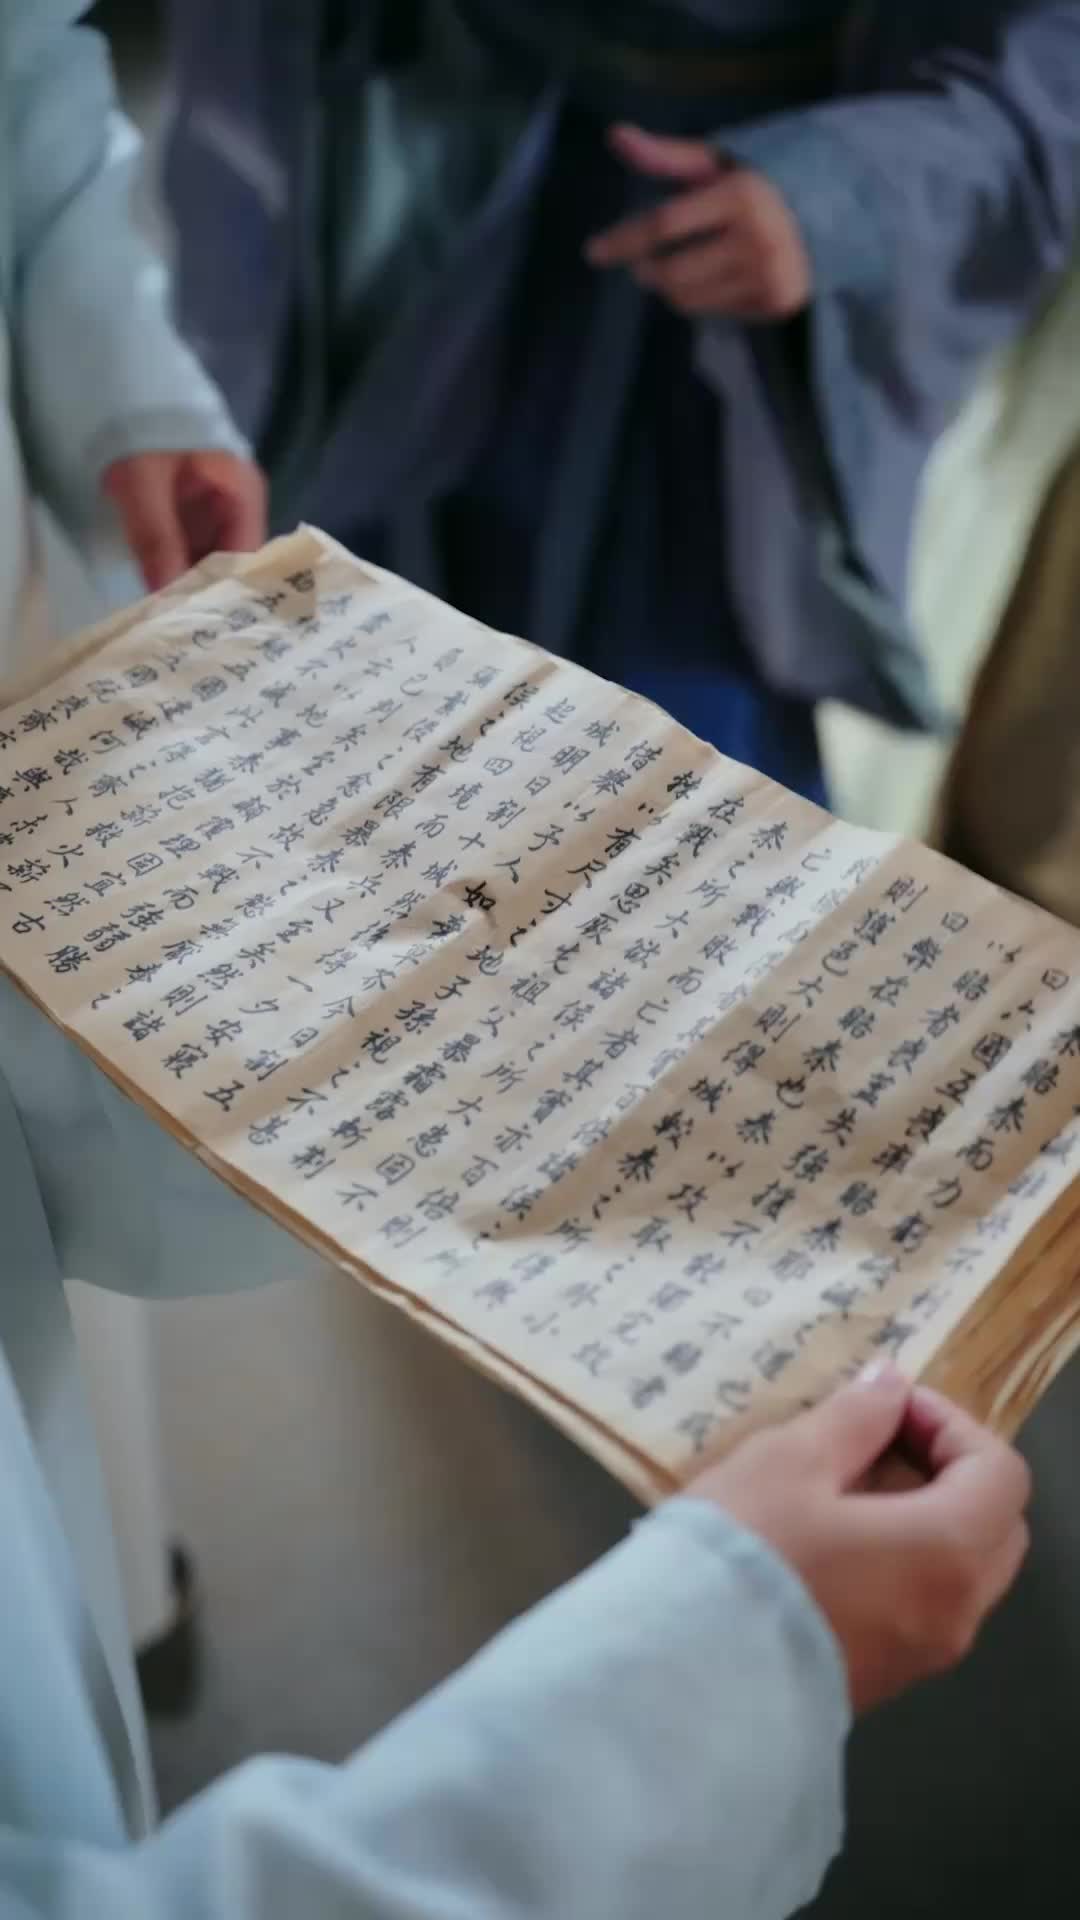 非兵不利戰
秦賂秦而力虧破滅之道
曰六國互喪率賂秦耶曰不
以賂者喪蓋失強援不能獨完故
曰弊在賂秦也秦以攻取之外小
則獲邑大則得城較秦之所得與
戰勝而得者其實百倍諸侯之所
亡與戰敗而亡者其實亦百倍則
秦之所大欲諸侯之所大患固不
在戰矣思厥先祖父暴霜露斬荊
棘以有尺寸之地子孫視之不甚
惜舉以予人如棄草芥今日割五
城明日割十城然後得一夕安寢
起視四境而秦兵又至矣然則諸
侯之地有限暴秦之欲無厭奉之
彌繁侵之愈急故不戰而強弱勝
負已判矣至於顛覆理固宜然古
人云以地事秦猶抱薪救火薪
不盡火不滅此言得之齊人未
秦終繼五國遷滅何哉與
助五國也五國既喪齊亦